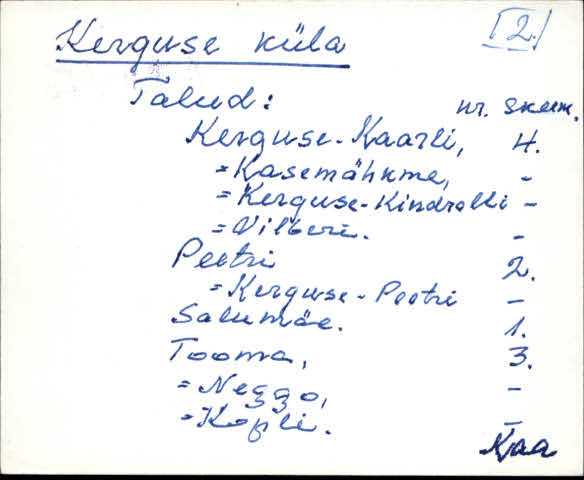 Kerguse küla [2.]
Talud: nr. skeem.
Kerguse-Kaarli, 4.
= Kasemähkme, -
= Kerguse-Kindralli -
= Vilberi. -
Peetri 2.
= Kerguse-Peetri -
Salumäe. 1.
Tooma, 3.
= Neggo, -
= Kopli. -
Kaa